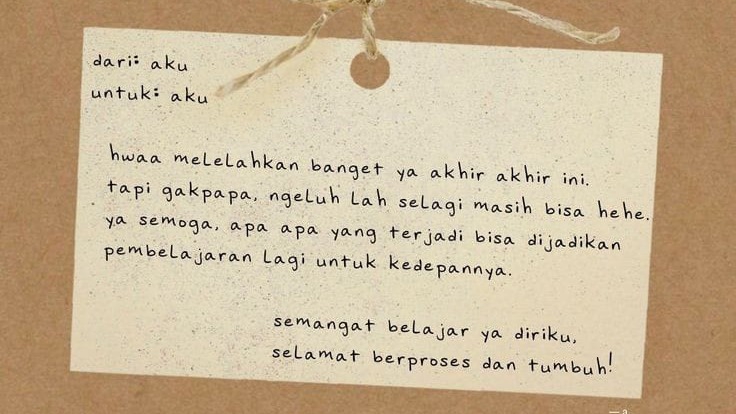 dari: aku
untuk: aku
hwaa melelahkan banget ya akhir akhir ini.
tapi gakpapa, ngeluh lah selagi masih bisa hehe.
ya semoga, apa apa yang terjadi bisa dijadikan
pembelajaran lagi untuk kedepannya.
semangat belajar ya diriku,
selamat berproses dan tumbuh!